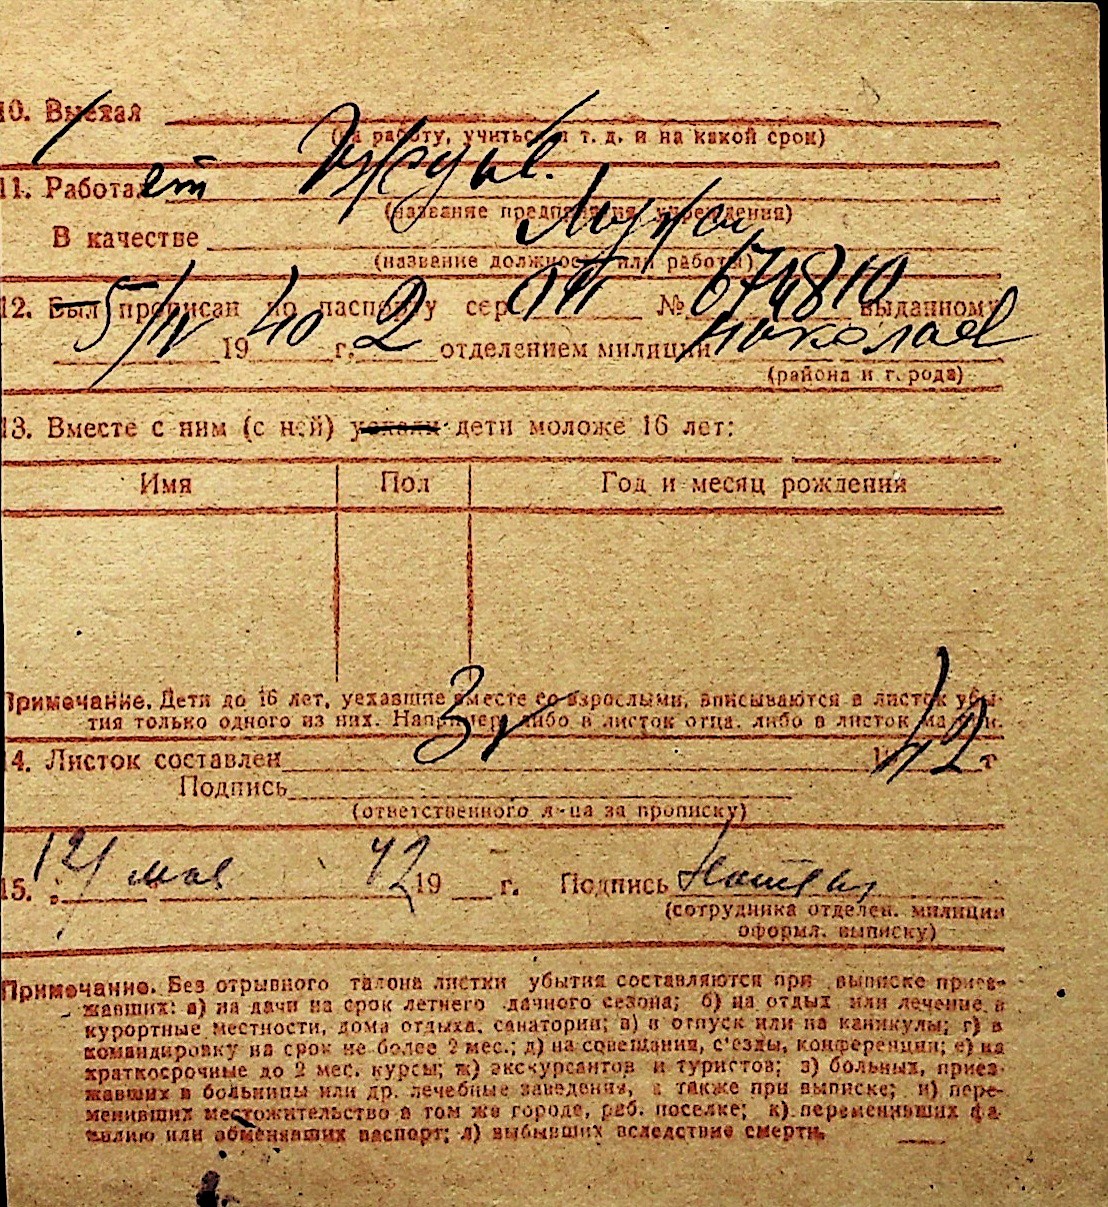 10. Выехал
(на работу, учиться и т. д. и на какой срок)
11. Работал
ет Иждив.
(название предприятия, учреждения)
В качестве
(название должности или работы)
12. Был прописан по паспорту сер. № 674810 выданному
5/IV 1940 г. 2 отделением милиции Николаев
(района и города)
13. Вместе с ним (с ней) уехали дети моложе 16 лет:
Имя Пол Год и месяц рождения
Примечание. Дети до 16 лет, уехавшие вместе со взрослыми, вписываются в листок убы-
тия только одного из них. Например, либо в листок отца, либо в листок матери.
14. Листок составлен 3/V 1942 г
Подпись
(ответственного лица за прописку)
15. мая 42 19 г. Подпись
(сотрудника отделен. милиции
оформл. выписку)
Примечание. Без отрывного талона листки убытия составляются при выписке приез-
жавших: а) на дачи на срок летнего дачного сезона; б) на отдых или лечение в
курортные местности, дома отдыха, санатории; в) в отпуск или на каникулы; г) в
командировку на срок не более 2 мес.; д) на совещания, с'езды, конференции; е) на
краткосрочные до 2 мес. курсы; ж) экскурсантов и туристов; з) больных, приез-
жавших в больницы или др. лечебные заведения, а также при выписке; и) пере-
менивших местожительство в том же городе, раб. поселке; к) переменивших фа-
милию или обменявших паспорт; л) выбывших вследствие смерти.